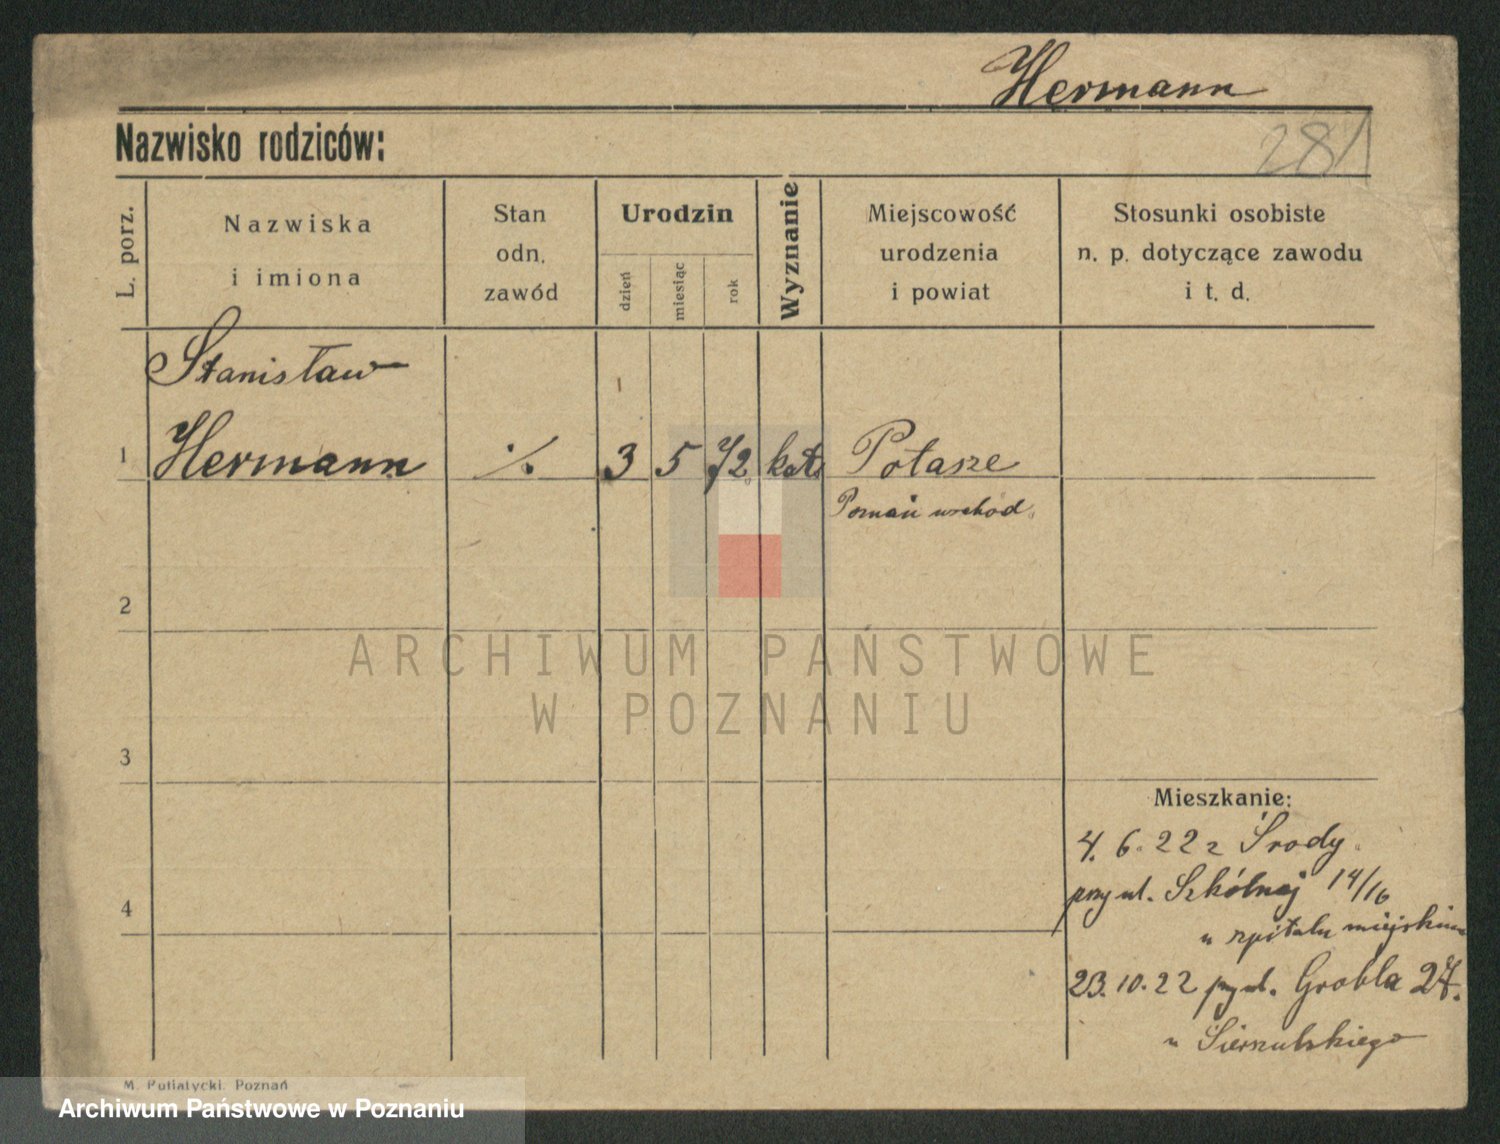 Hermann
281
Nazwisko rodziców:
L. porz.
Nazwiska
i imiona
Stan
odn.
zawód
Urodzin
dzień
miesiąc
rok
Wyznanie
Miejscowość
urodzenia
i powiat
Stosunki osobiste
n. p. dotyczące zawodu
i t. d.
Stanisław
1 Hermann ·/. 3 5 72 kat. Potasze
Poznań wschód.
2
ARCHIWUM PAŃSTWOWE
W POZNANIU
3
Mieszkanie:
4. 6. 22 z Środy.
przy ul. Szkólnej 14/16
4
u szpitalu miejskim
23. 10. 22 przy ul. Grobla 27.
u
M. Putiatycki, Poznań
Archiwum Państwowe w Poznaniu